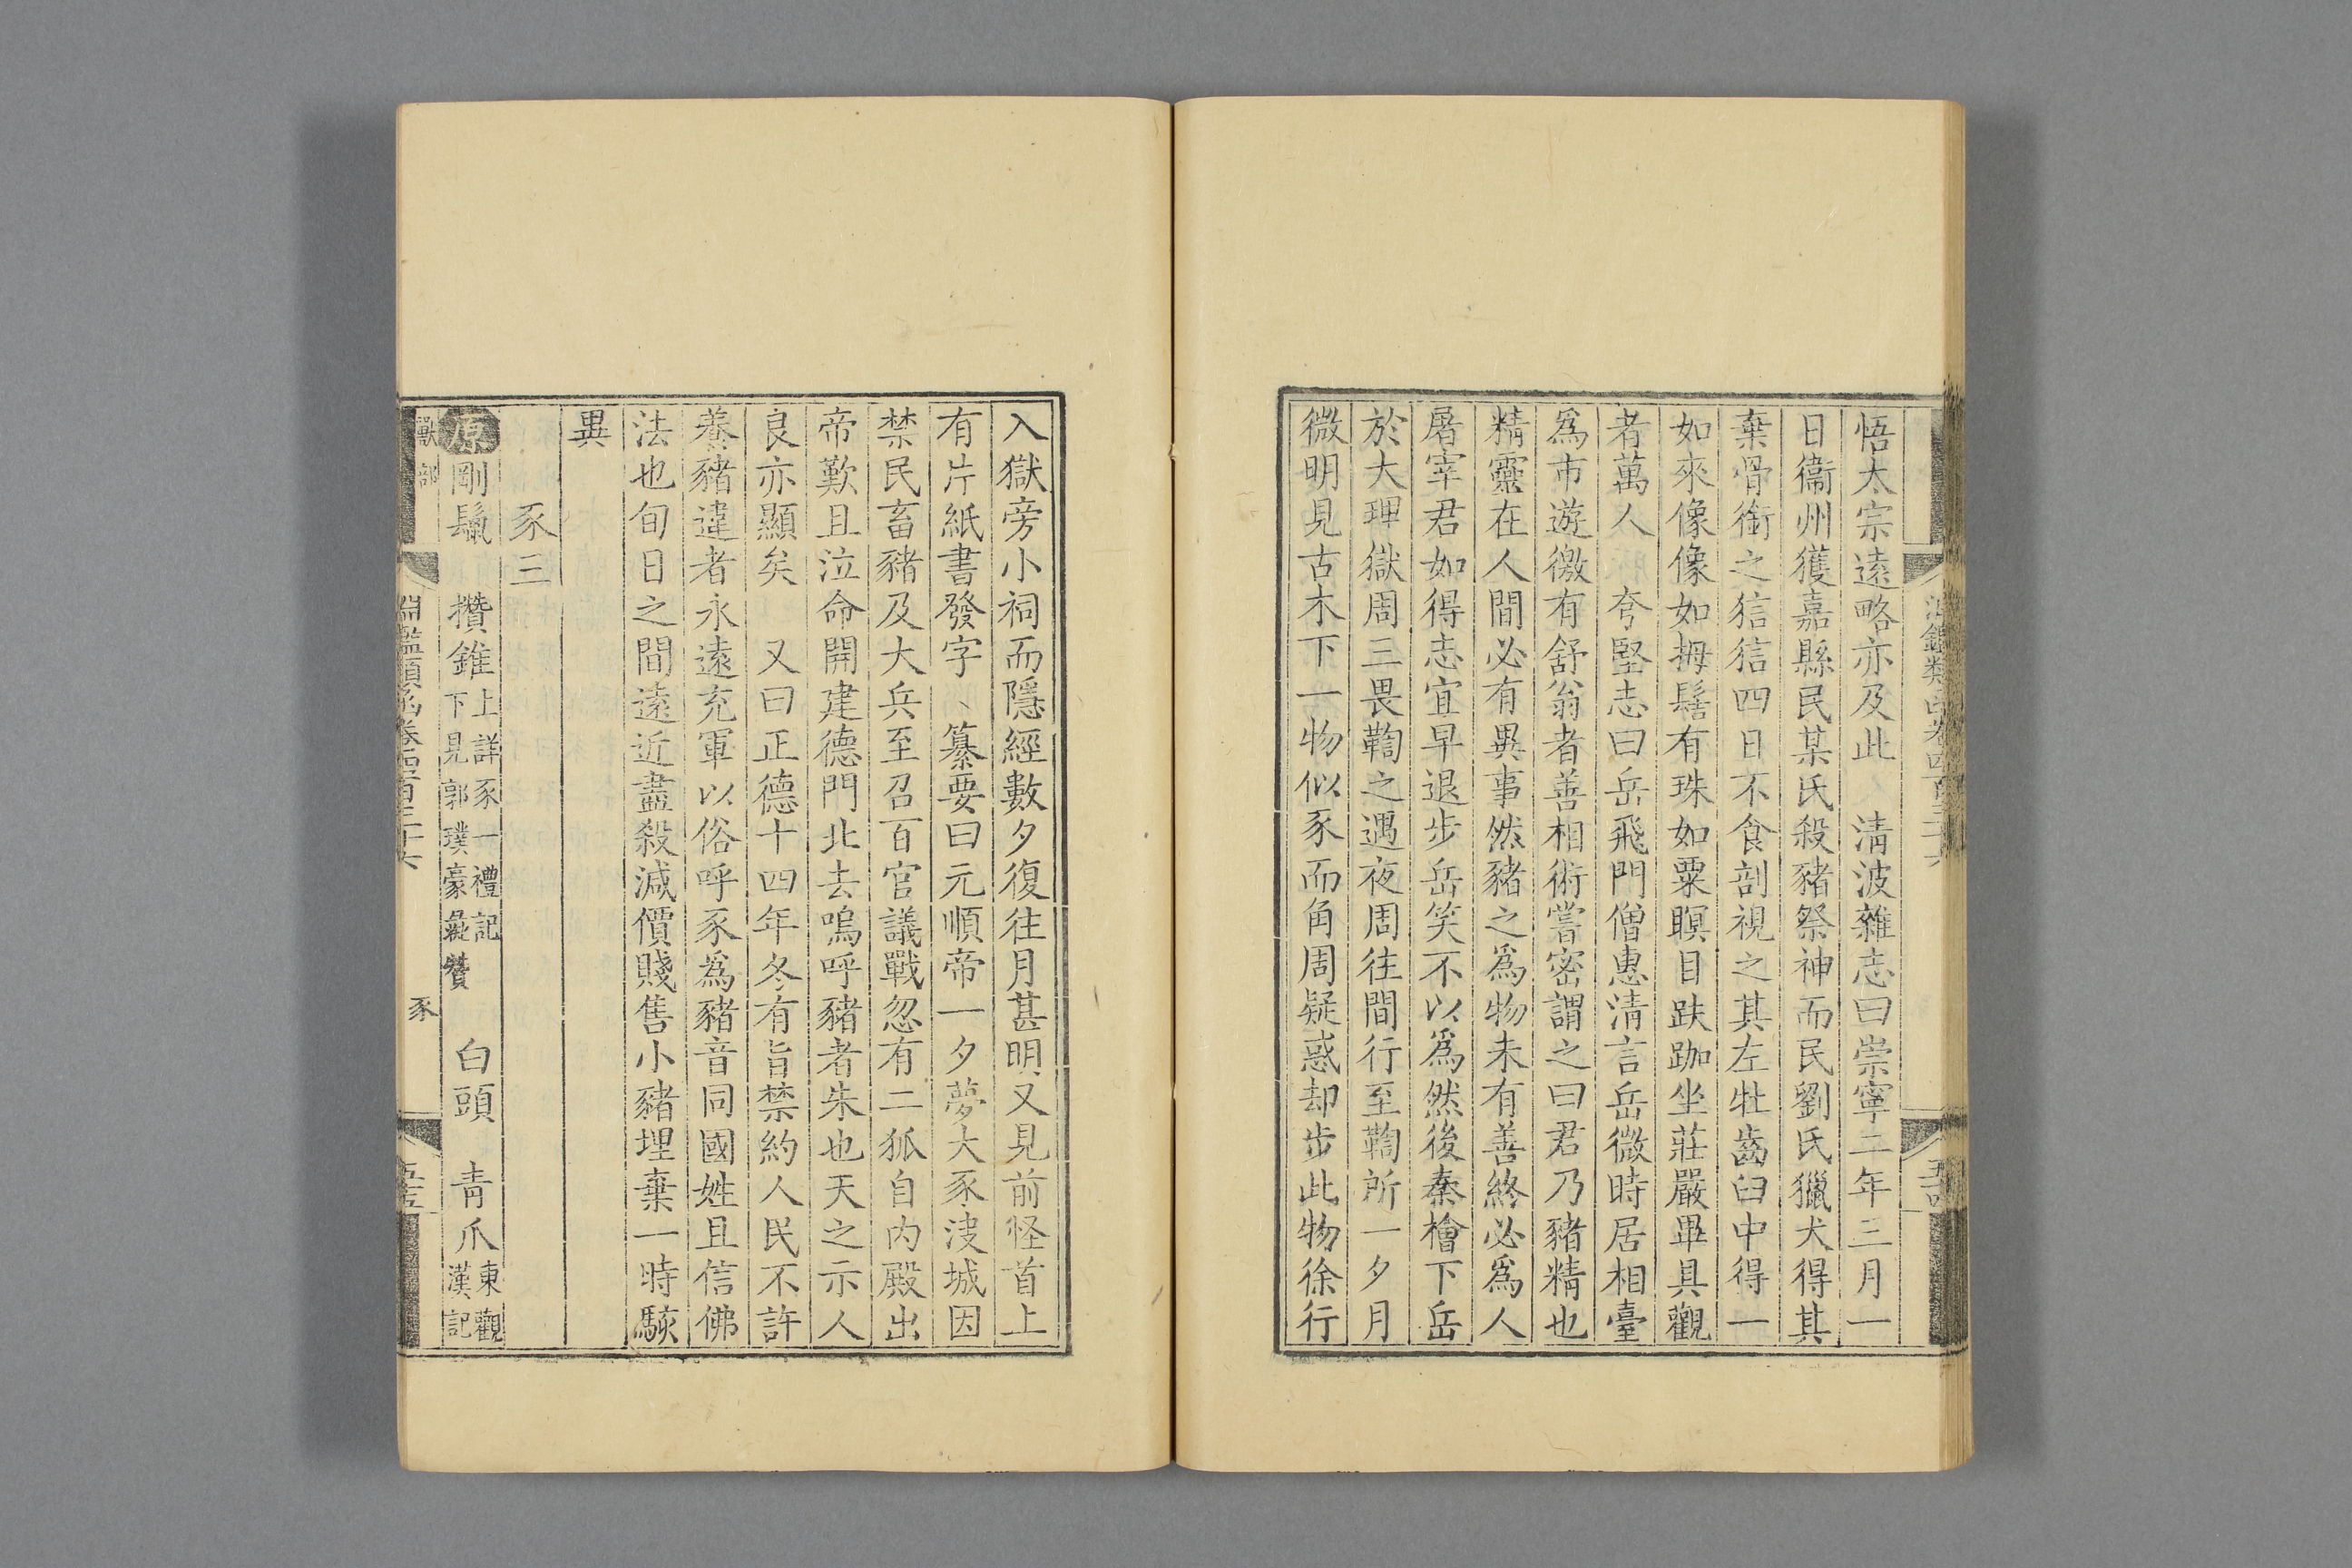 悟太宗遠略亦及此　清波雜志曰崇寧二年三月一
日衞州獲嘉縣民某氏殺豬祭神而民劉氏獵犬得其
棄骨銜之狺狺四日不食剖視之其左牡齒臼中得一
如來像像如拇髻有珠如粟瞑目趺跏坐莊嚴畢具觀
者萬人　夸堅志曰岳飛門僧惠清言岳微時居相臺
爲市遊徼有舒翁者善相術嘗密謂之曰君乃豬精也
精靈在人間必有異事然豬之爲物未有善終必爲人
屠宰君如得志宜早退步岳笑不以爲然後秦檜下岳
於大理獄周三畏鞫之遇夜周往間行至鞫所一夕月
微明見古木下一物似豕而角周疑惑却步此物徐行
入獄旁小祠而隱經數夕復往月甚明又見前怪首上
有片紙書發字　纂要曰元順帝一夕夢大豕決城因
禁民畜豬及大兵至召百官議戰忽有二狐自内殿出
帝歎且泣命開建德門北去嗚呼豬者朱也天之示人
良亦顯矣　又曰正德十四年冬有旨禁約人民不許
養豬違者永遠充軍以俗呼豕爲豬音同國姓且信佛
法也旬日之間遠近盡殺減價賤售小豬埋棄一時駭
異
豕三
原剛鬣　攢錐上詳豕一禮記下見郭璞豪彘贊　白頭　青爪東觀漢記
獸部　淵鑑類函卷四百三十六　豕　五十五